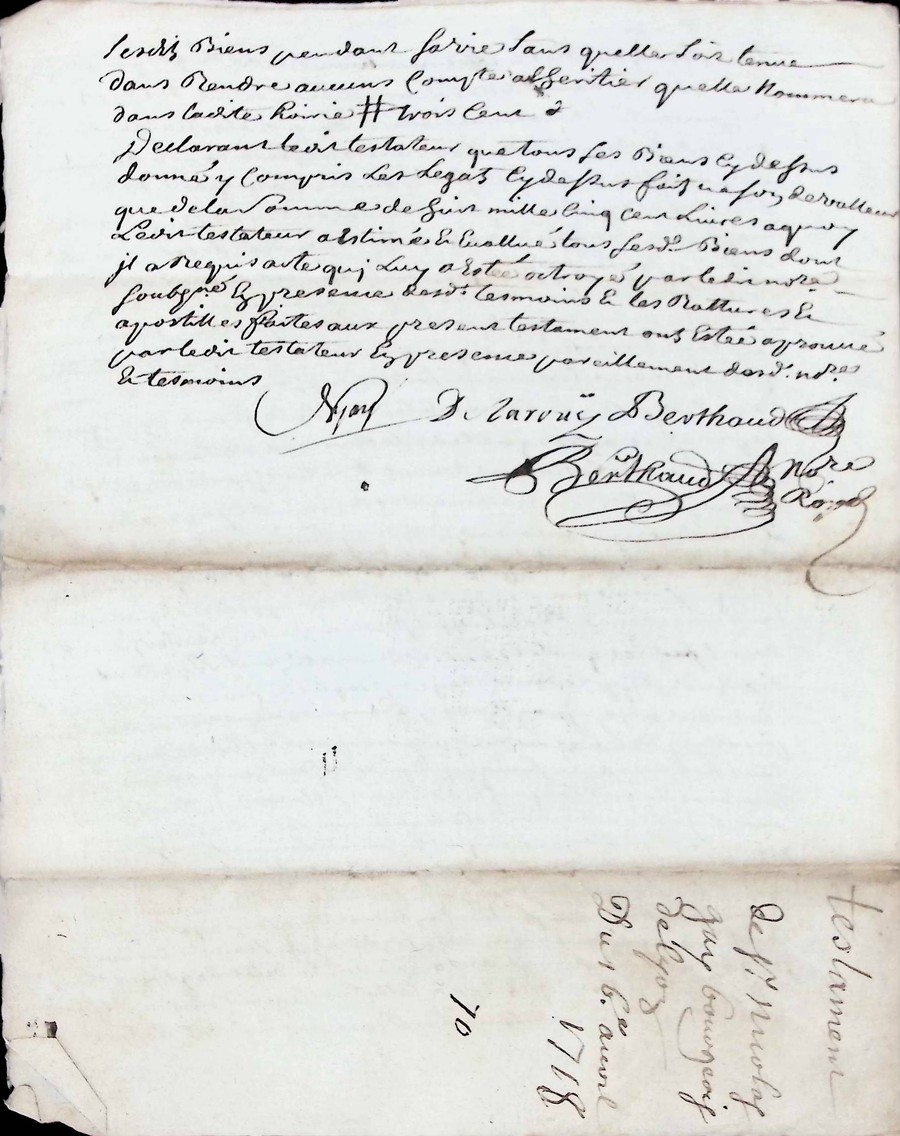 lesdits Biens pendant sa vie sans quelle soit tenue
dans Rendre aucuns Compte alheritier quelle Nommera
dans ladite hoirie # trois Cent 2
Declarant ledit testateur que tous ses Biens Cy dessus
donné y Compris Les Legats Cy dessus fait ne son de valleur
que de la Somme de huit mille Cinq Cent Livres a quoy
Ledit testateur a Estimé & Evallué tous sesd. Biens dont
jl a Requis acte quj Luy a Esteé octroyé par ledit nore
soubzné En presence desd. tesmoins & les Rattures &
apostilles faites aux present testament ont Esteé aprouvé
par ledit testateur En presence pareillement desd. nores
& tesmoins
D Laroüy Berthaud
Berthaud Nore
Ro
testament
de sr. nicolas
gay bourgeois
de lyon
Du 16e. avril
1718
10